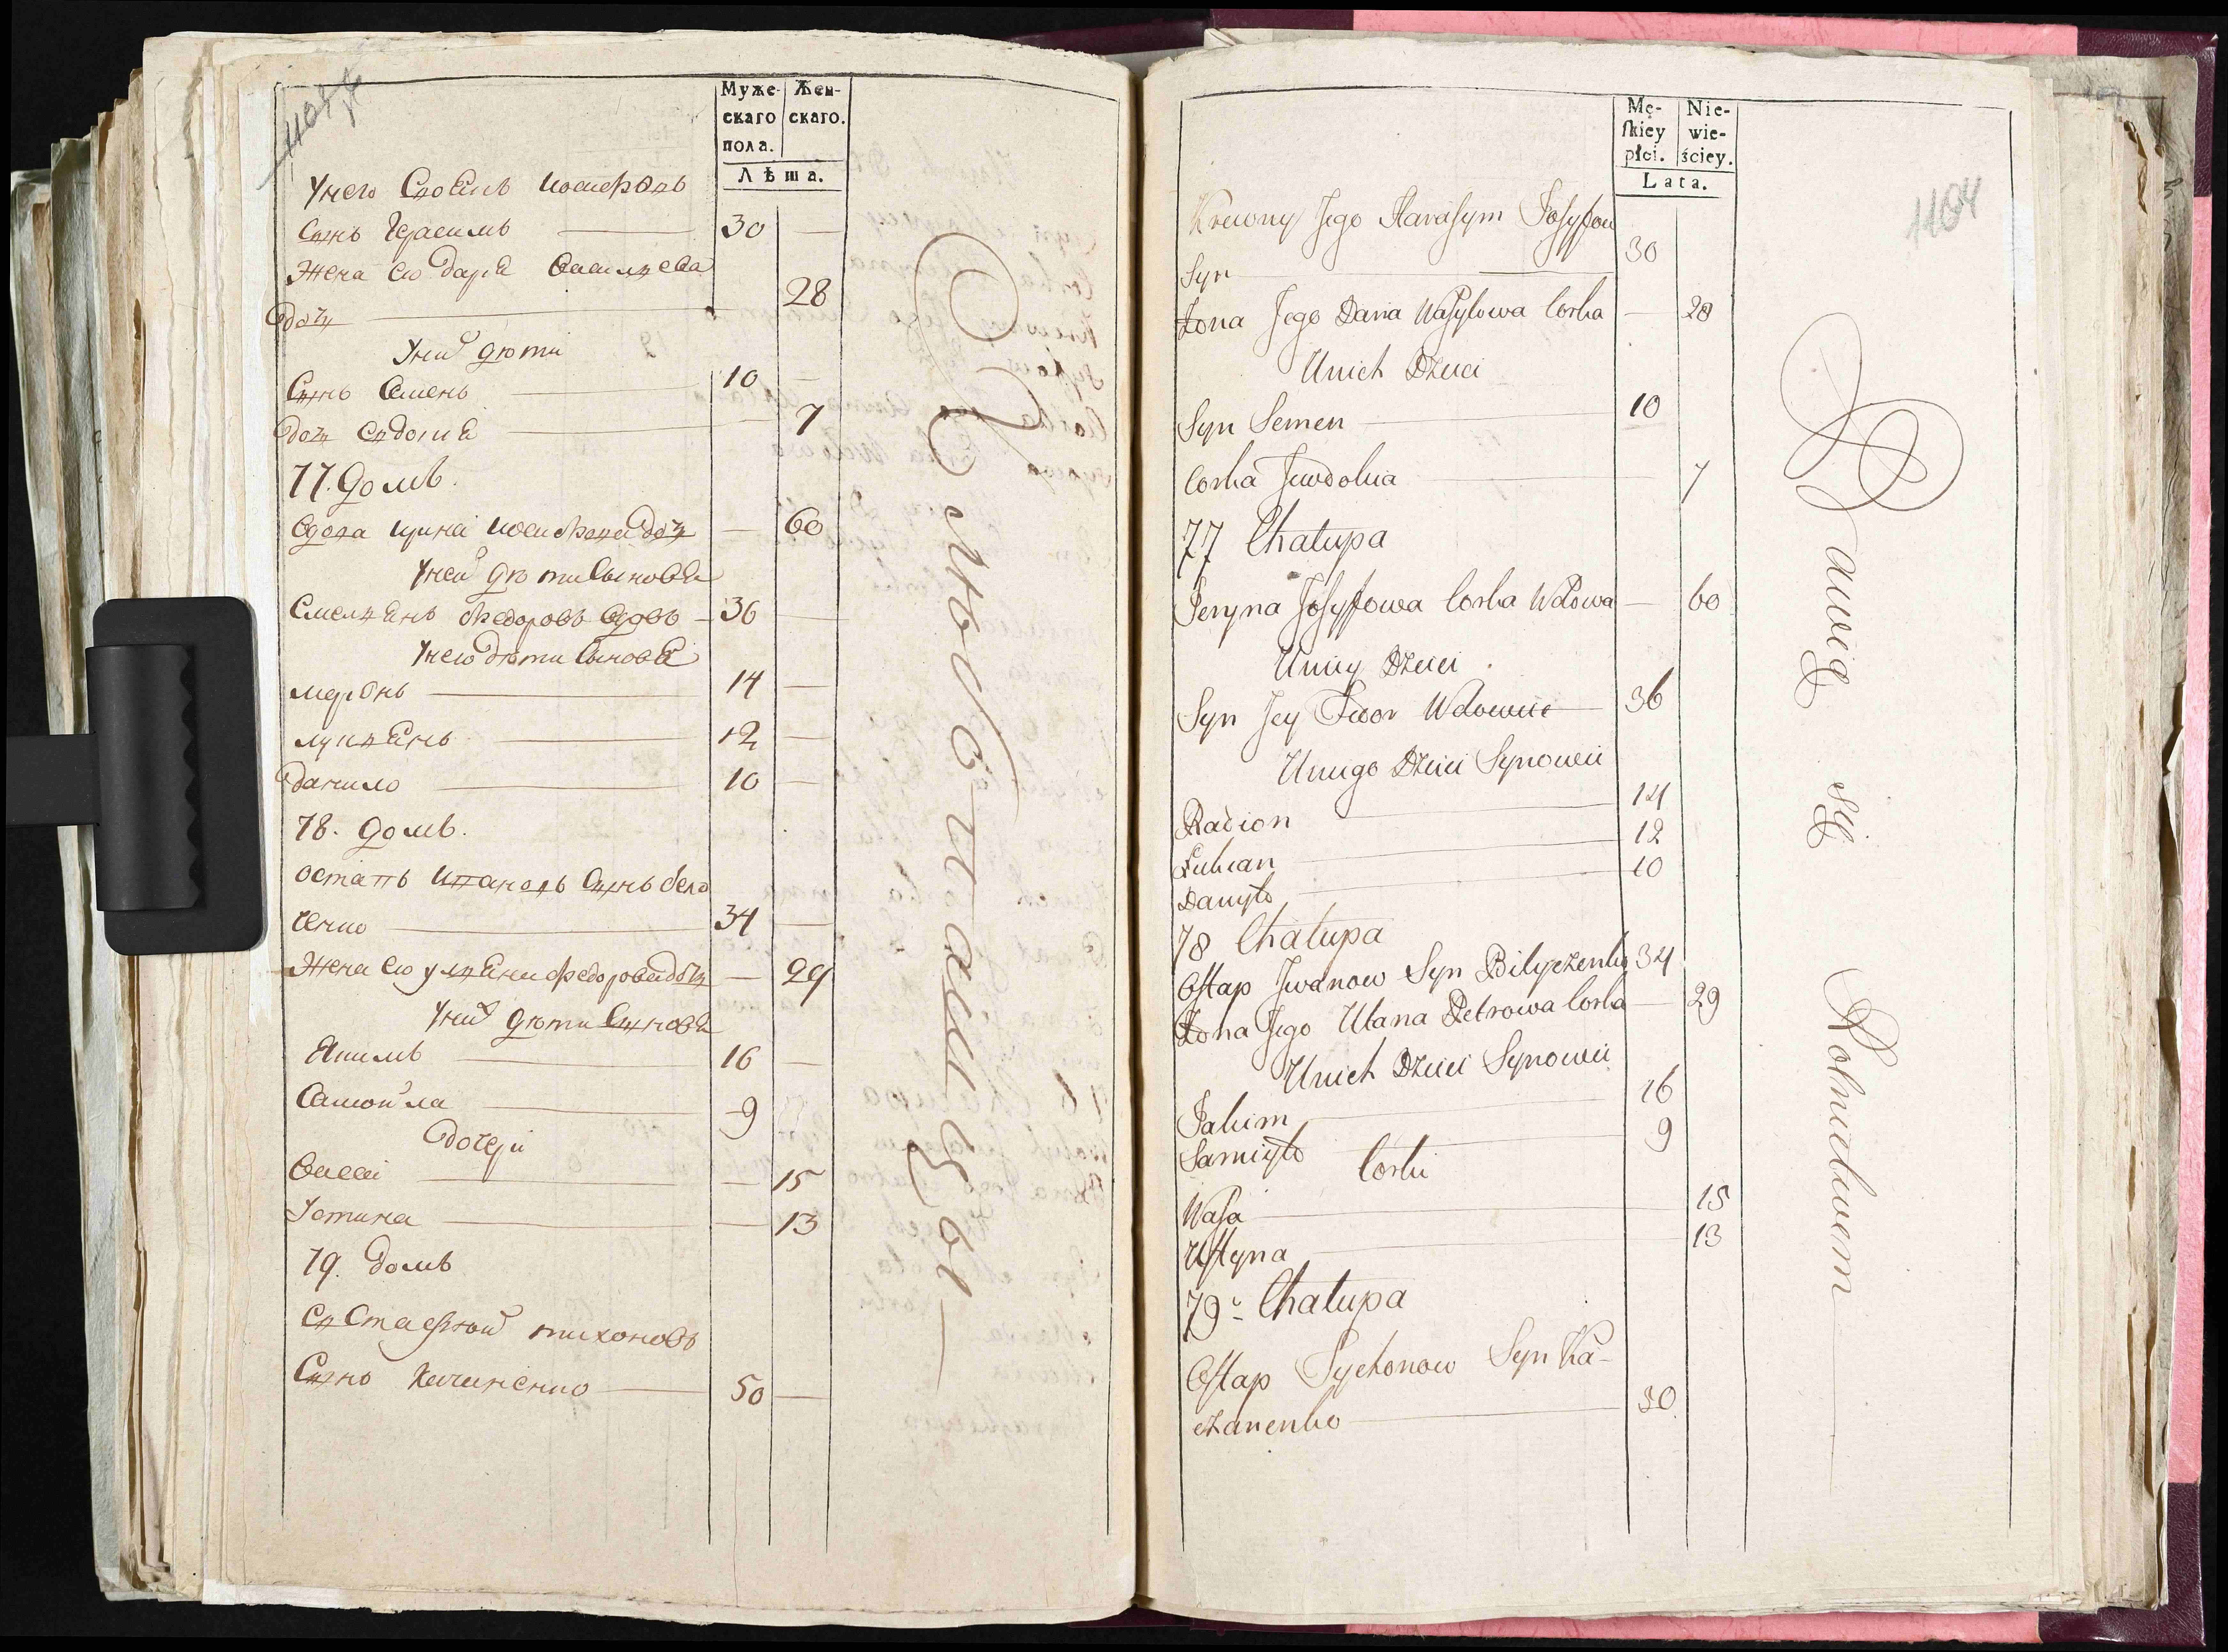 Муже-
скаго
пола.
Жен-
скаго.
Лѣта.
Унего
Сынъ Герасимъ 30
Жена его Дарья Васильева
Дочь 28
Уних дѣти
Сынъ Семенъ 10
Дочь Евдокия 7
77. Домъ.
Вдова Ирина Иосифова Дочь 60
Уней дѣти Сыновья
Емельянъ Федоровъ Вдовъ 36
Унего дѣти Сыновья
12
Данило 10
78. Домъ.
Остапъ Сынъ Бело
ченко 34
Жена его Ульяна Федорова дочь 29
Уних дѣти Сыновья
Якимъ 16
Самойла 9
Дочери
Васса 15
Устина 13
79. Домъ
Евстафий Тихоновъ
Сынъ 50
Хлебопашцы
1104
Mę-
skiey
płci.
Nie-
wie-
ściey.
Lata.
Krewny Jego Harasym Josyfow
Syn 30
Żona Jego Daria Wasylowa Corka 28
Unich Dzieci
Syn Semen 10
Corka Jewdokia 7
77 Chałupa
Jeryna Josyffowa Corka Wdowa 60
Uniey Dzieci
Syn Jey Fiedor Wdowiec 36
Uniego Dzieci Synowie
Radion 14
Łukian 12
Danyło 10
78 Chałupa
Ostap Jwanow Syn Biłyczenko 34
Żona Jego Ulana Petrowa Corka 29
Unich Dzieci Synowie
Jakim 16
Samiyło 9
Corki
Wasa 15
Ustyna 13
79 Chałupa
Ostap Tychonow Syn Ka-
czanenko 50
Bawią się Rolnictwem
1104